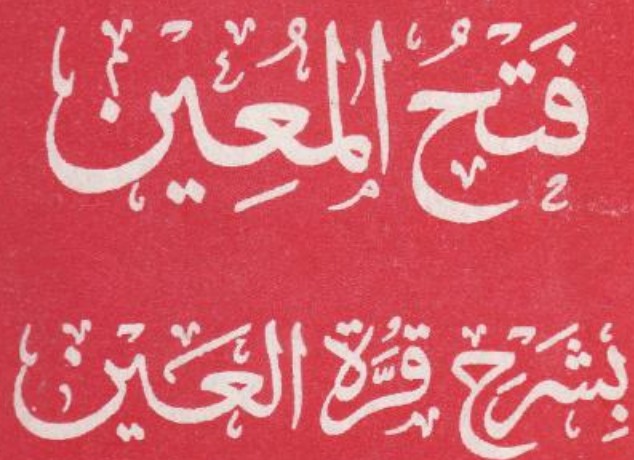 فَتْحُ المُعِين
بِشَرْحِ قُرَّةِ العَيْن